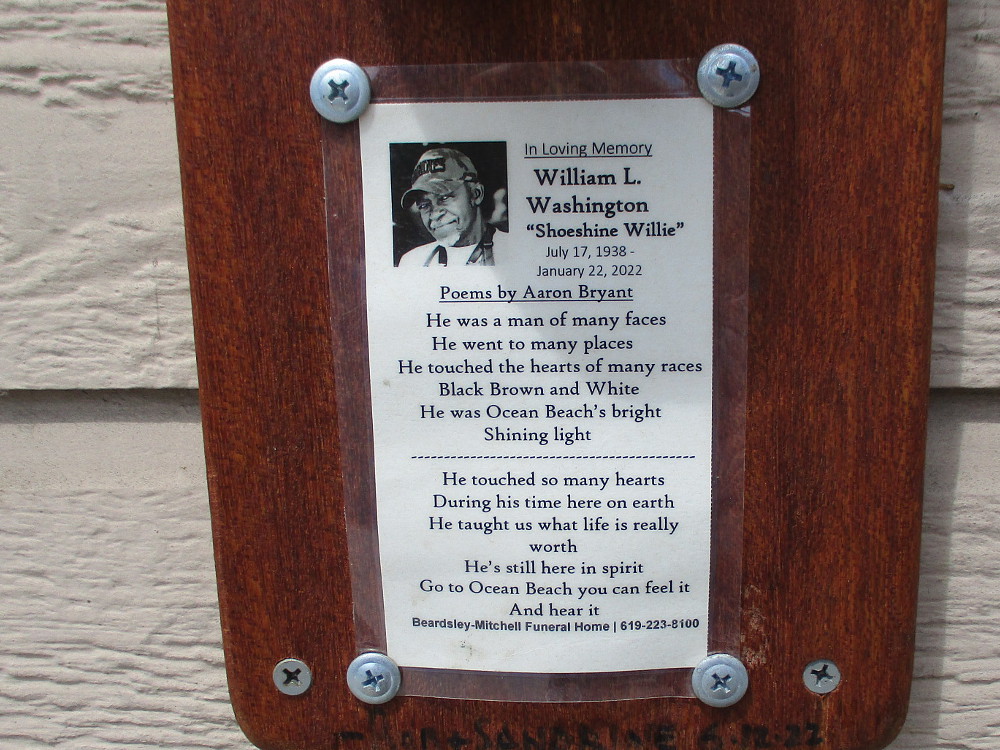 In Loving Memory
William L.
Washington
“Shoeshine Willie”
July 17, 1938 -
January 22, 2022
Poems by Aaron Bryant
He was a man of many faces
He went to many places
He touched the hearts of many races
Black Brown and White
He was Ocean Beach's bright
Shining light
He touched so many hearts
During his time here on earth
He taught us what life is really
worth
He's still here in spirit
Go to Ocean Beach you can feel it
And hear it
Beardsley-Mitchell Funeral Home | 619-223-8100